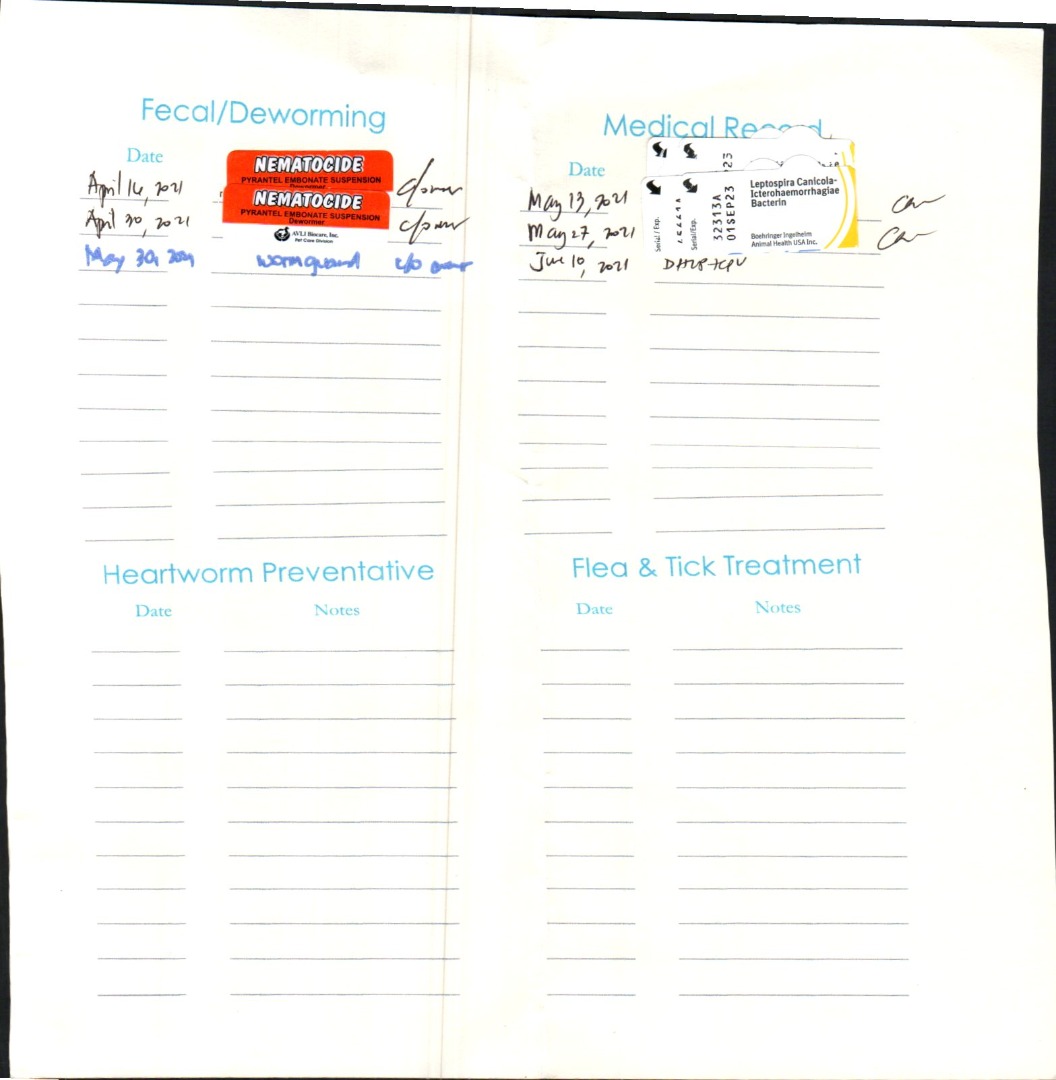 Fecal/Deworming
Date
April 16, 2021
NEMATOCIDE
PYRANTEL EMBONATE SUSPENSION
Dewormer
c/o owner
April 30, 2021
NEMATOCIDE
PYRANTEL EMBONATE SUSPENSION
Dewormer
AVLI Biocare, Inc.
Pet Care Division
c/o owner
May 30, 2021 wormguard c/o owner
Heartworm Preventative
Date Notes
Medical Record
Date
May 13, 2021
May 27, 2021
Serial/Exp.
Serial/Exp.
32313A
01SEP23
Leptospira Canicola-
Icterohaemorrhagiae
Bacterin
Boehringer Ingelheim
Animal Health USA Inc.
June 10, 2021
Flea & Tick Treatment
Date Notes